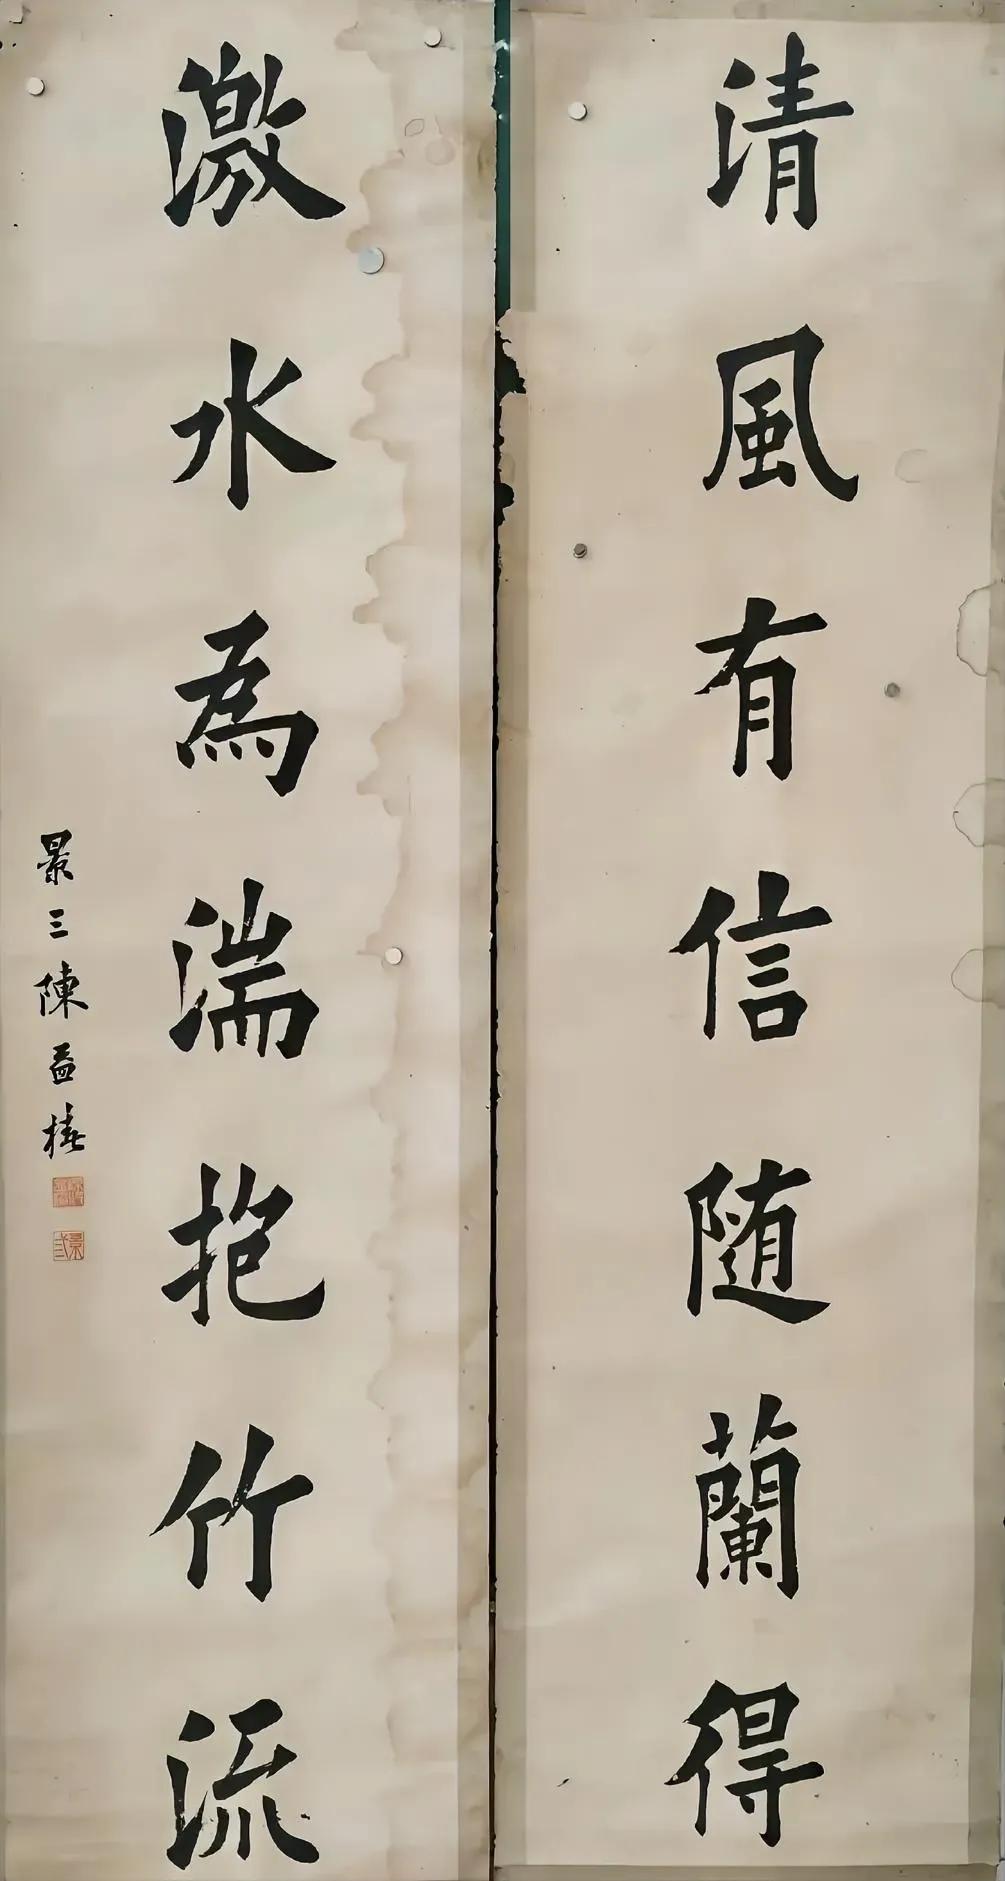 清風有信随蘭得
激水為湍抱竹流
景三陳